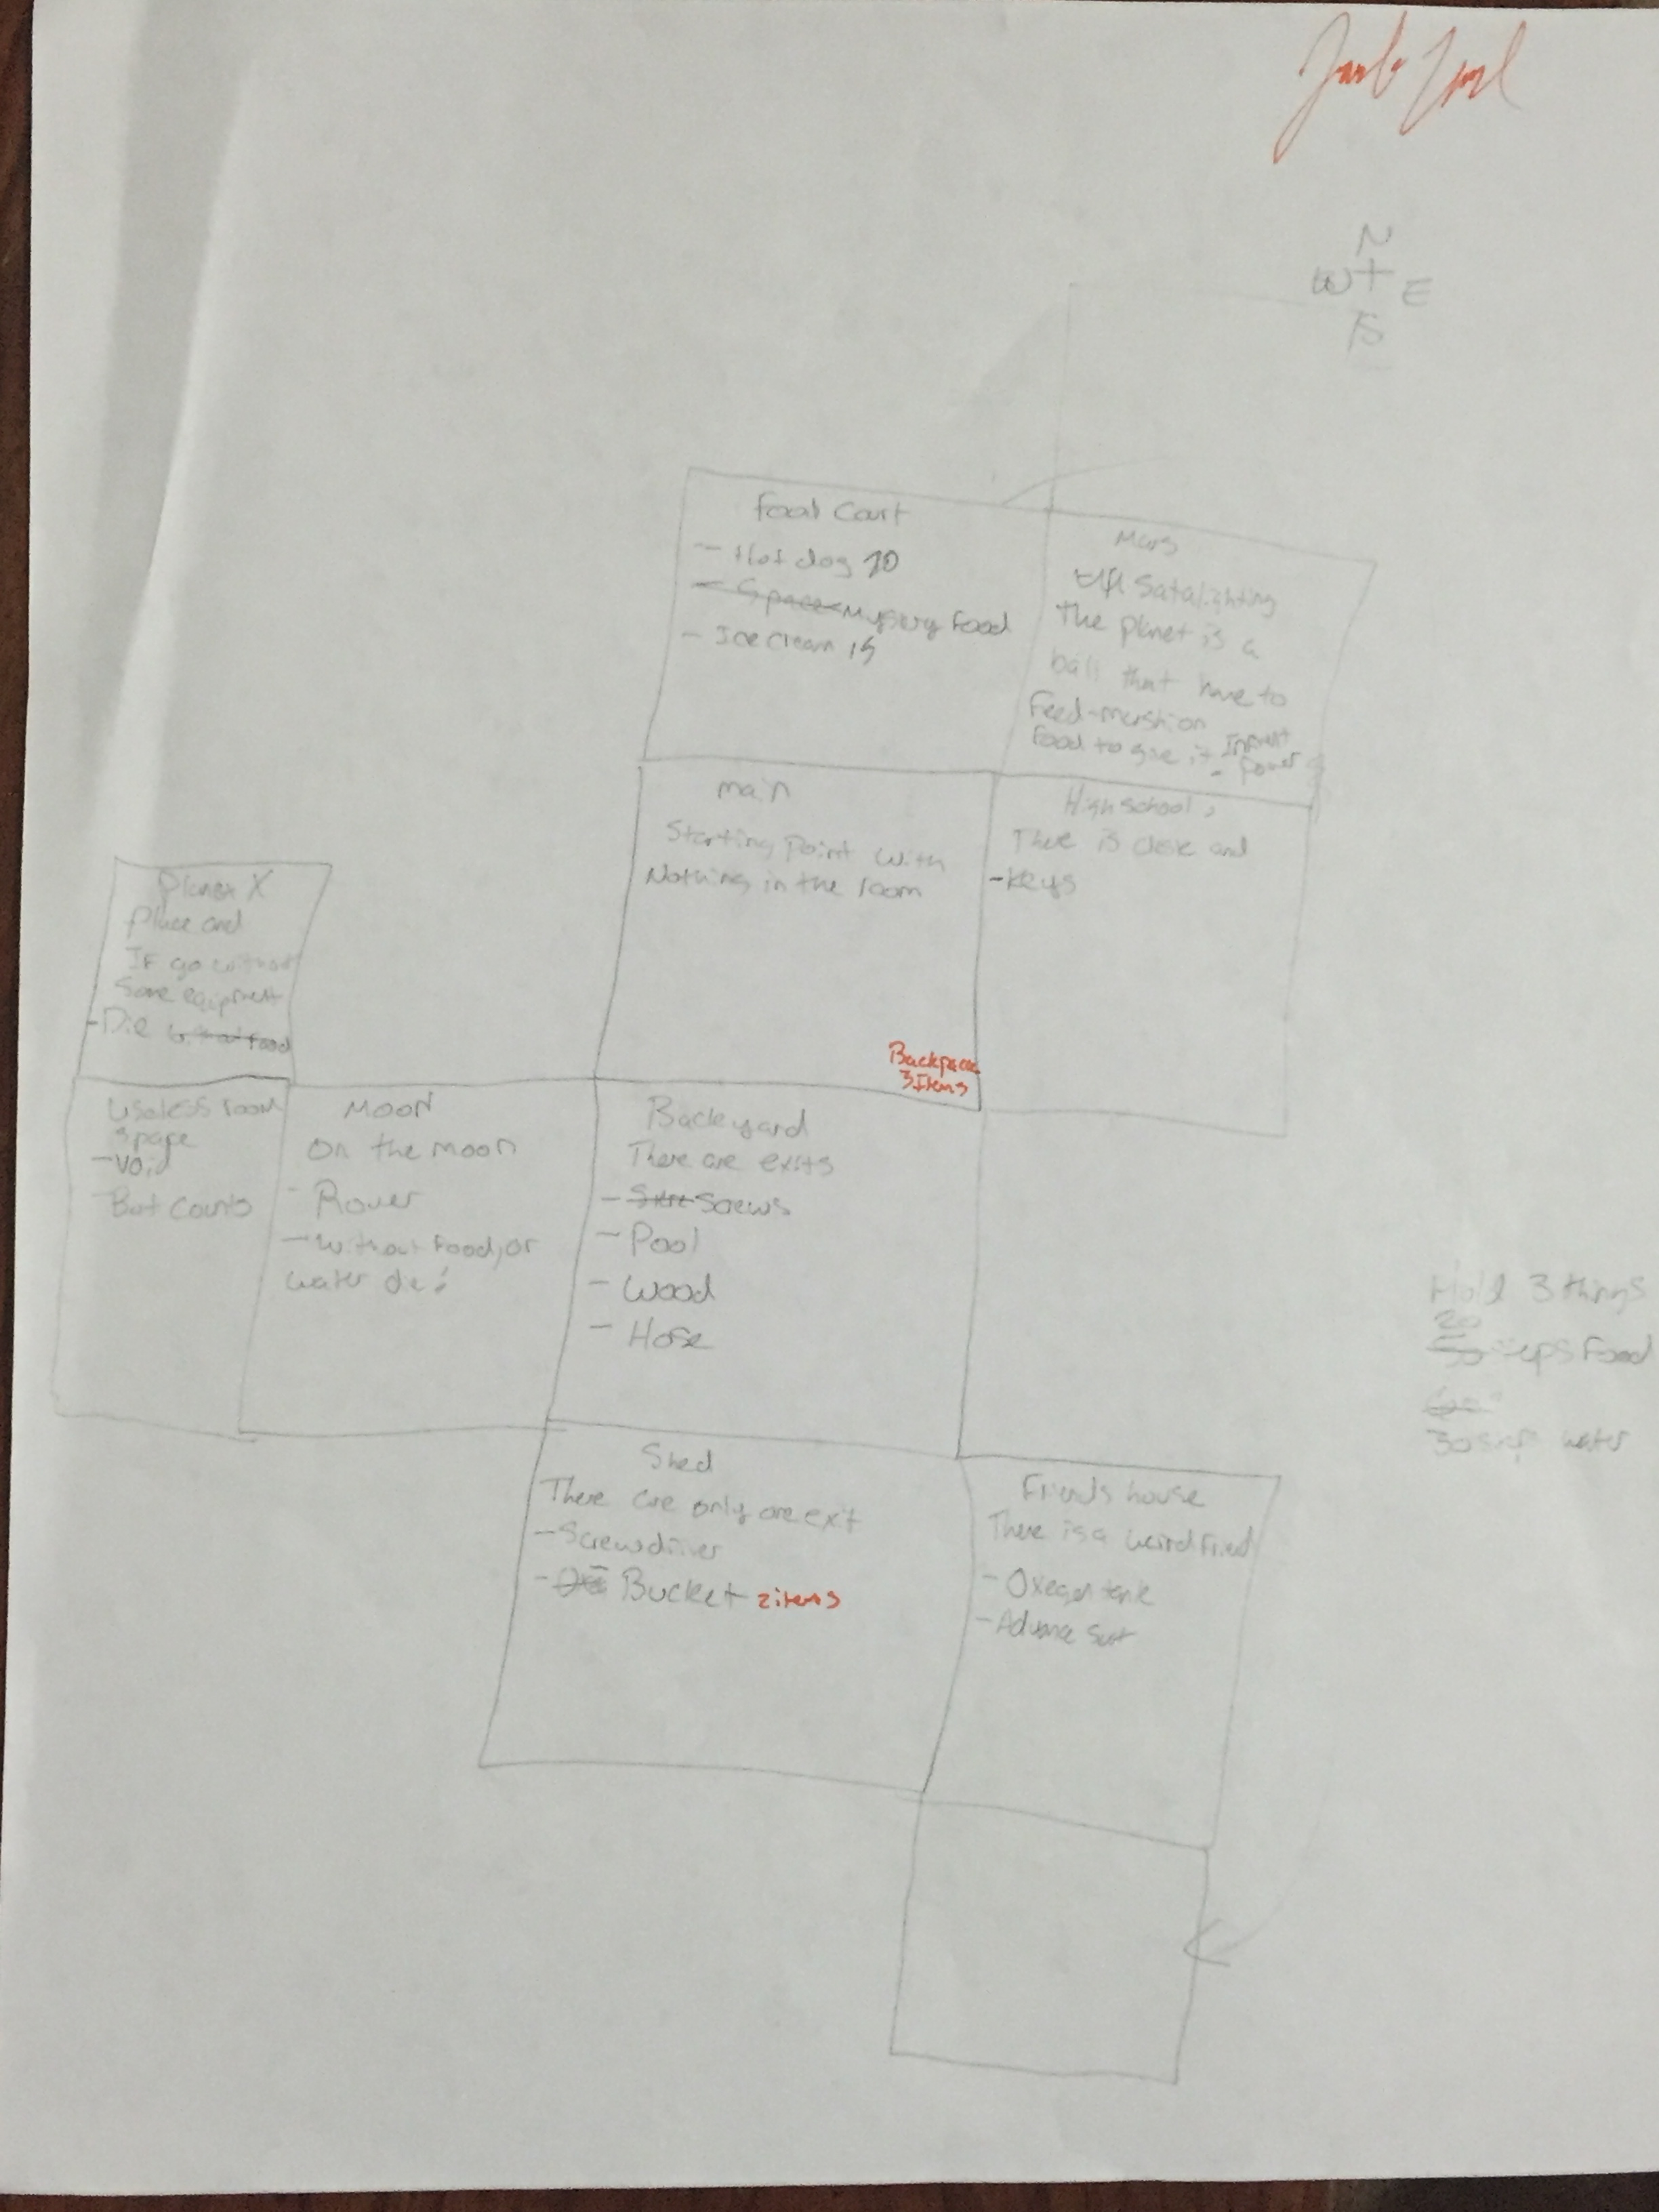 N
W E
S
Food Court
- Hot dog 10
- Space Mysery Food
- Ice Cream 15
Mars
Satalighting
The planet is a
ball that have to
Feed-mushion
food to give it
Power
main
Starting Point with
Nothing in the room
Backpack
3 Items
High school
There is desk and
- Keys
Planet X
Place and
IF go without
Some equipment
- Die without food
Useless room
space
- Void
But counts
Moon
On the moon
- Rover
- Without Food, or
water die!
Backyard
There are exits
- Screws
- Pool
- Wood
- Hose
Hold 3 things
20
50 steps Food
60
30 step water
Shed
There are only one exit
- Screwdriver
- Bucket 2 items
Friends house
There is a weird friend
- Oxegen tank
- Advance Suit